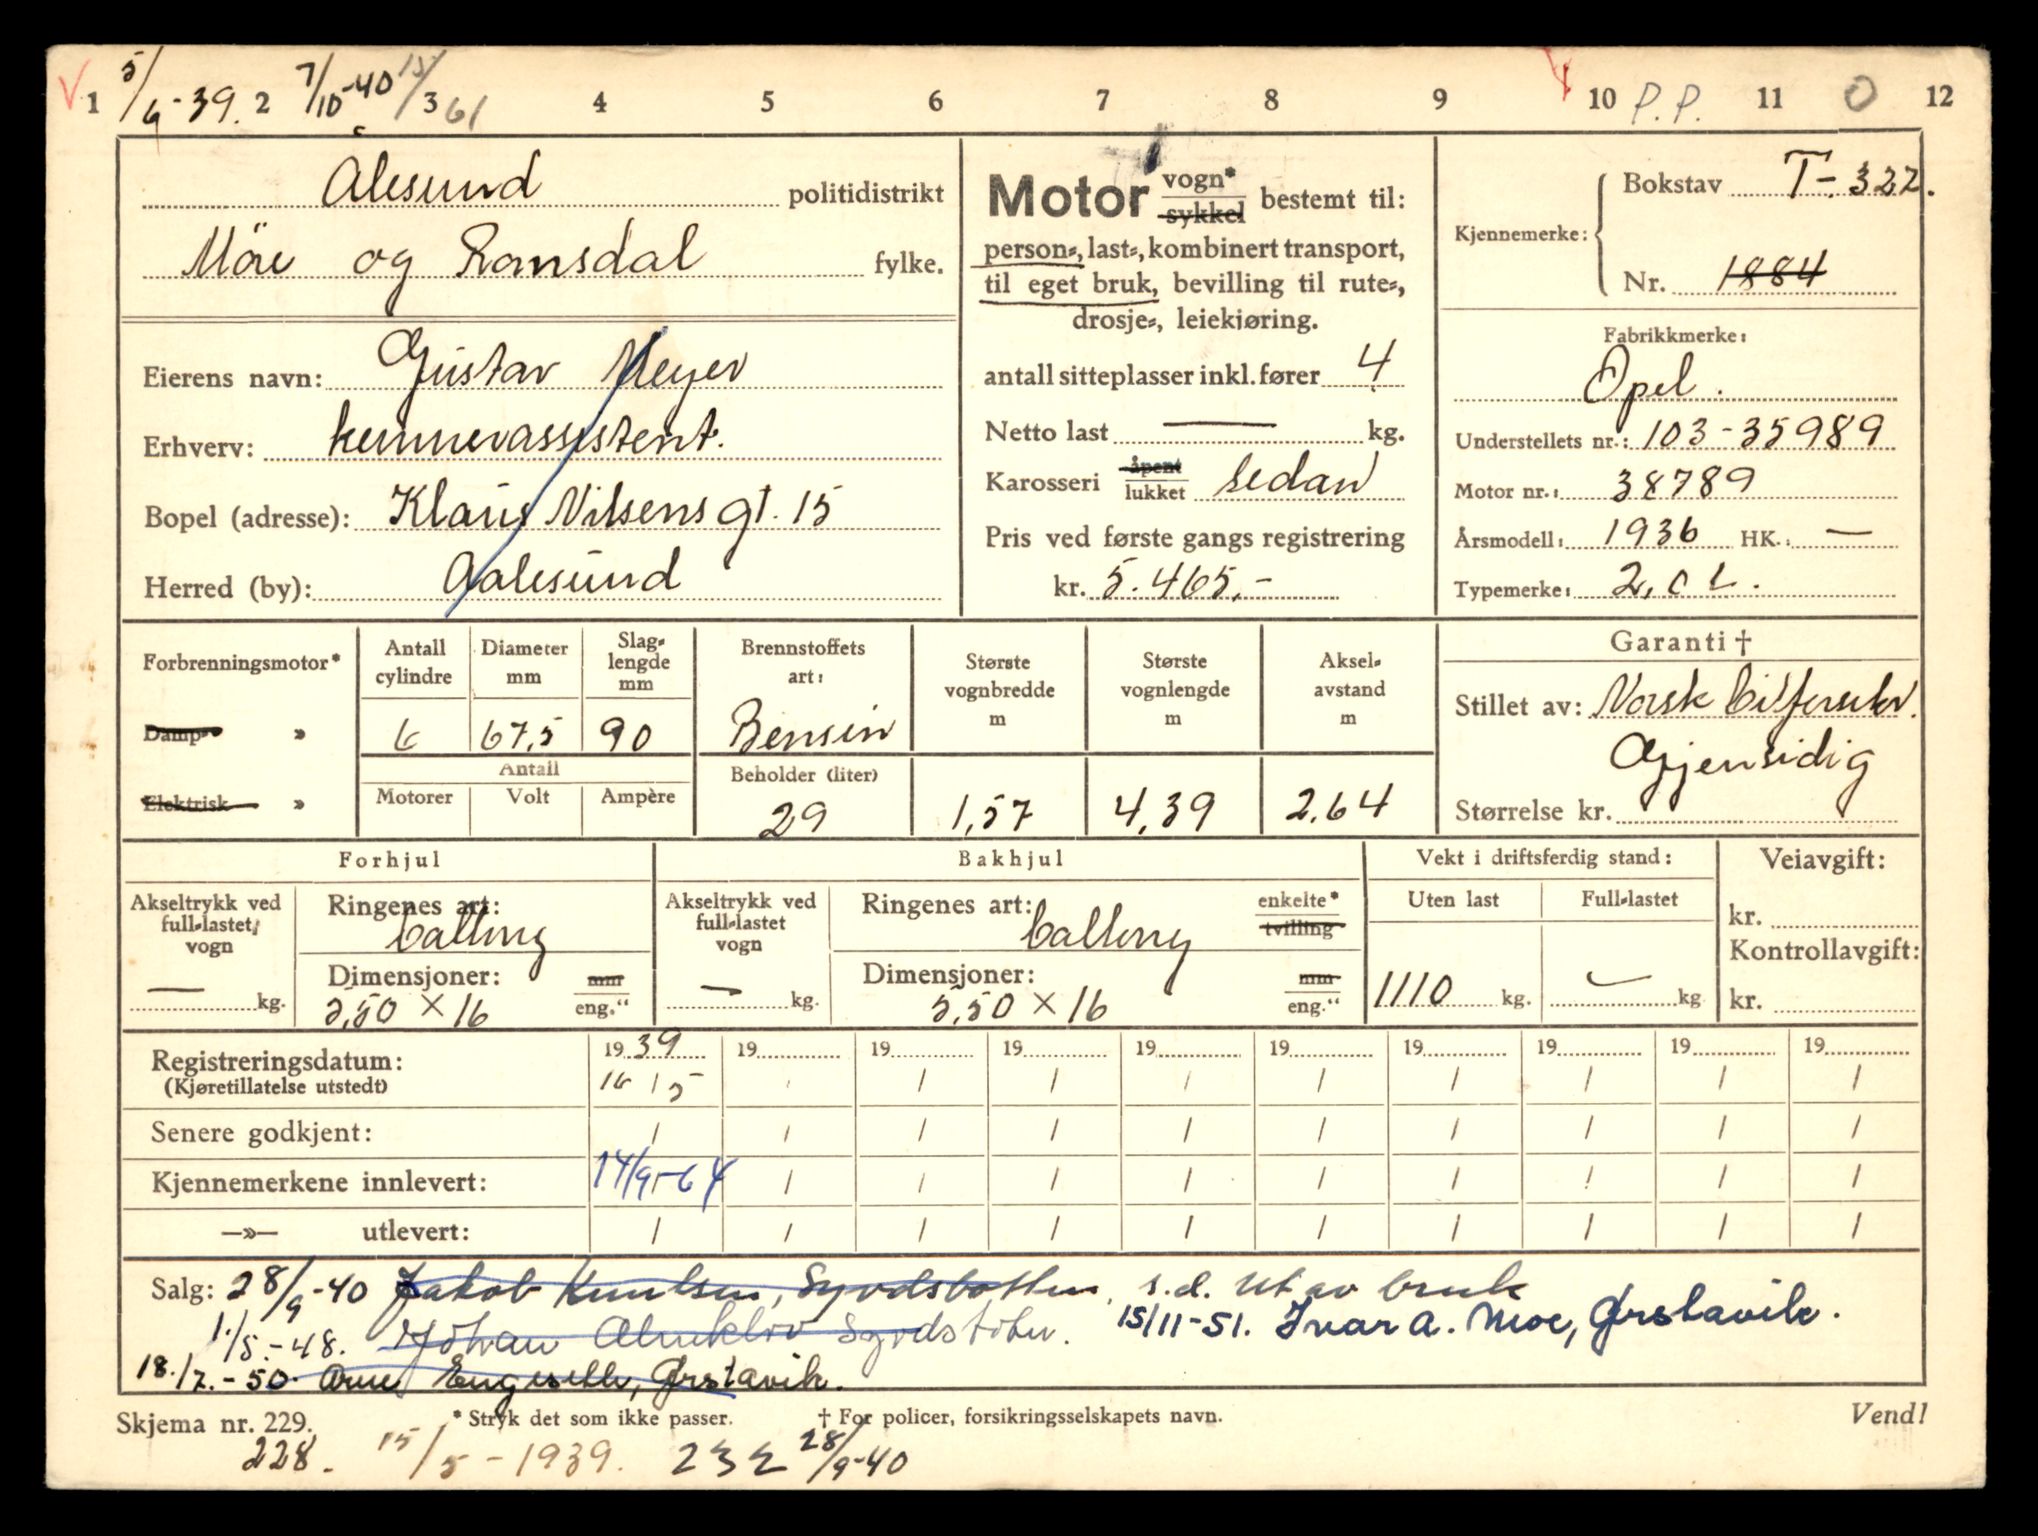 1 5/6-39. 2 7/10-40 3 15/61 4 5 6 7 8 9 10 P.P. 11 0 12
Alesund politidistrikt
Möre og Romsdal fylke.
Eierens navn: Gustav Meyer
Erhverv: kemnerassistent.
Bopel (adresse): Klaus Nilsens gt. 15
Herred (by): Aalesund
Motor vogn* sykkel bestemt til:
person-, last-, kombinert transport,
til eget bruk, bevilling til rute-,
drosje-, leiekjøring.
antall sitteplasser inkl. fører 4
Netto last — kg.
Karosseri åpent lukket sedan
Pris ved første gangs registrering
kr. 5.465,-
Kjennemerke: Bokstav T-322.
Nr. 1884
Fabrikkmerke:
Opel.
Understellets nr.: 103-35989
Motor nr.: 38789
Årsmodell: 1936 HK.: —
Typemerke: 2,0 L.
Forbrenningsmotor*
Damp- »
Elektrisk »
Antall cylindre
6
Diameter mm
67,5
Slag-lengde mm
90
Antall
Motorer Volt Ampère
Brennstoffets art:
Bensin
Beholder (liter)
29
Største vognbredde m
1,57
Største vognlengde m
4,39
Aksel-avstand m
2,64
Garanti †
Stillet av: Norsk Bilforsikr.
Gjensidig
Størrelse kr.
Forhjul
Akseltrykk ved full-lastet vogn
— kg.
Ringenes art:
ballong
Dimensjoner: mm
5,50 × 16 eng."
Bakhjul
Akseltrykk ved full-lastet vogn
— kg.
Ringenes art: enkelte* tvilling
ballong
Dimensjoner: mm
5,50 × 16 eng."
Vekt i driftsferdig stand:
Uten last Full-lastet
1110 kg. — kg
Veiavgift:
kr.
Kontrollavgift:
kr.
Registreringsdatum: 1939 19 19 19 19 19 19 19 19 19
(Kjøretillatelse utstedt) 16 / 5
Senere godkjent:
Kjennemerkene innlevert: 14/9-64
—»— utlevert:
Salg: 28/9-40 Jakob Knutsen, Syvdsbotten, s.d. Ut av bruk
1./5.-48. Johan Syvdsbotn. 15/11-51. Ivar A. Moe, Ørstavik.
18./7.-50. Arne Engeseth, Ørstavik.
Skjema nr. 229. * Stryk det som ikke passer. † For policer, forsikringsselskapets navn. Vend!
228. 15/5-1939. 232 28/9-40